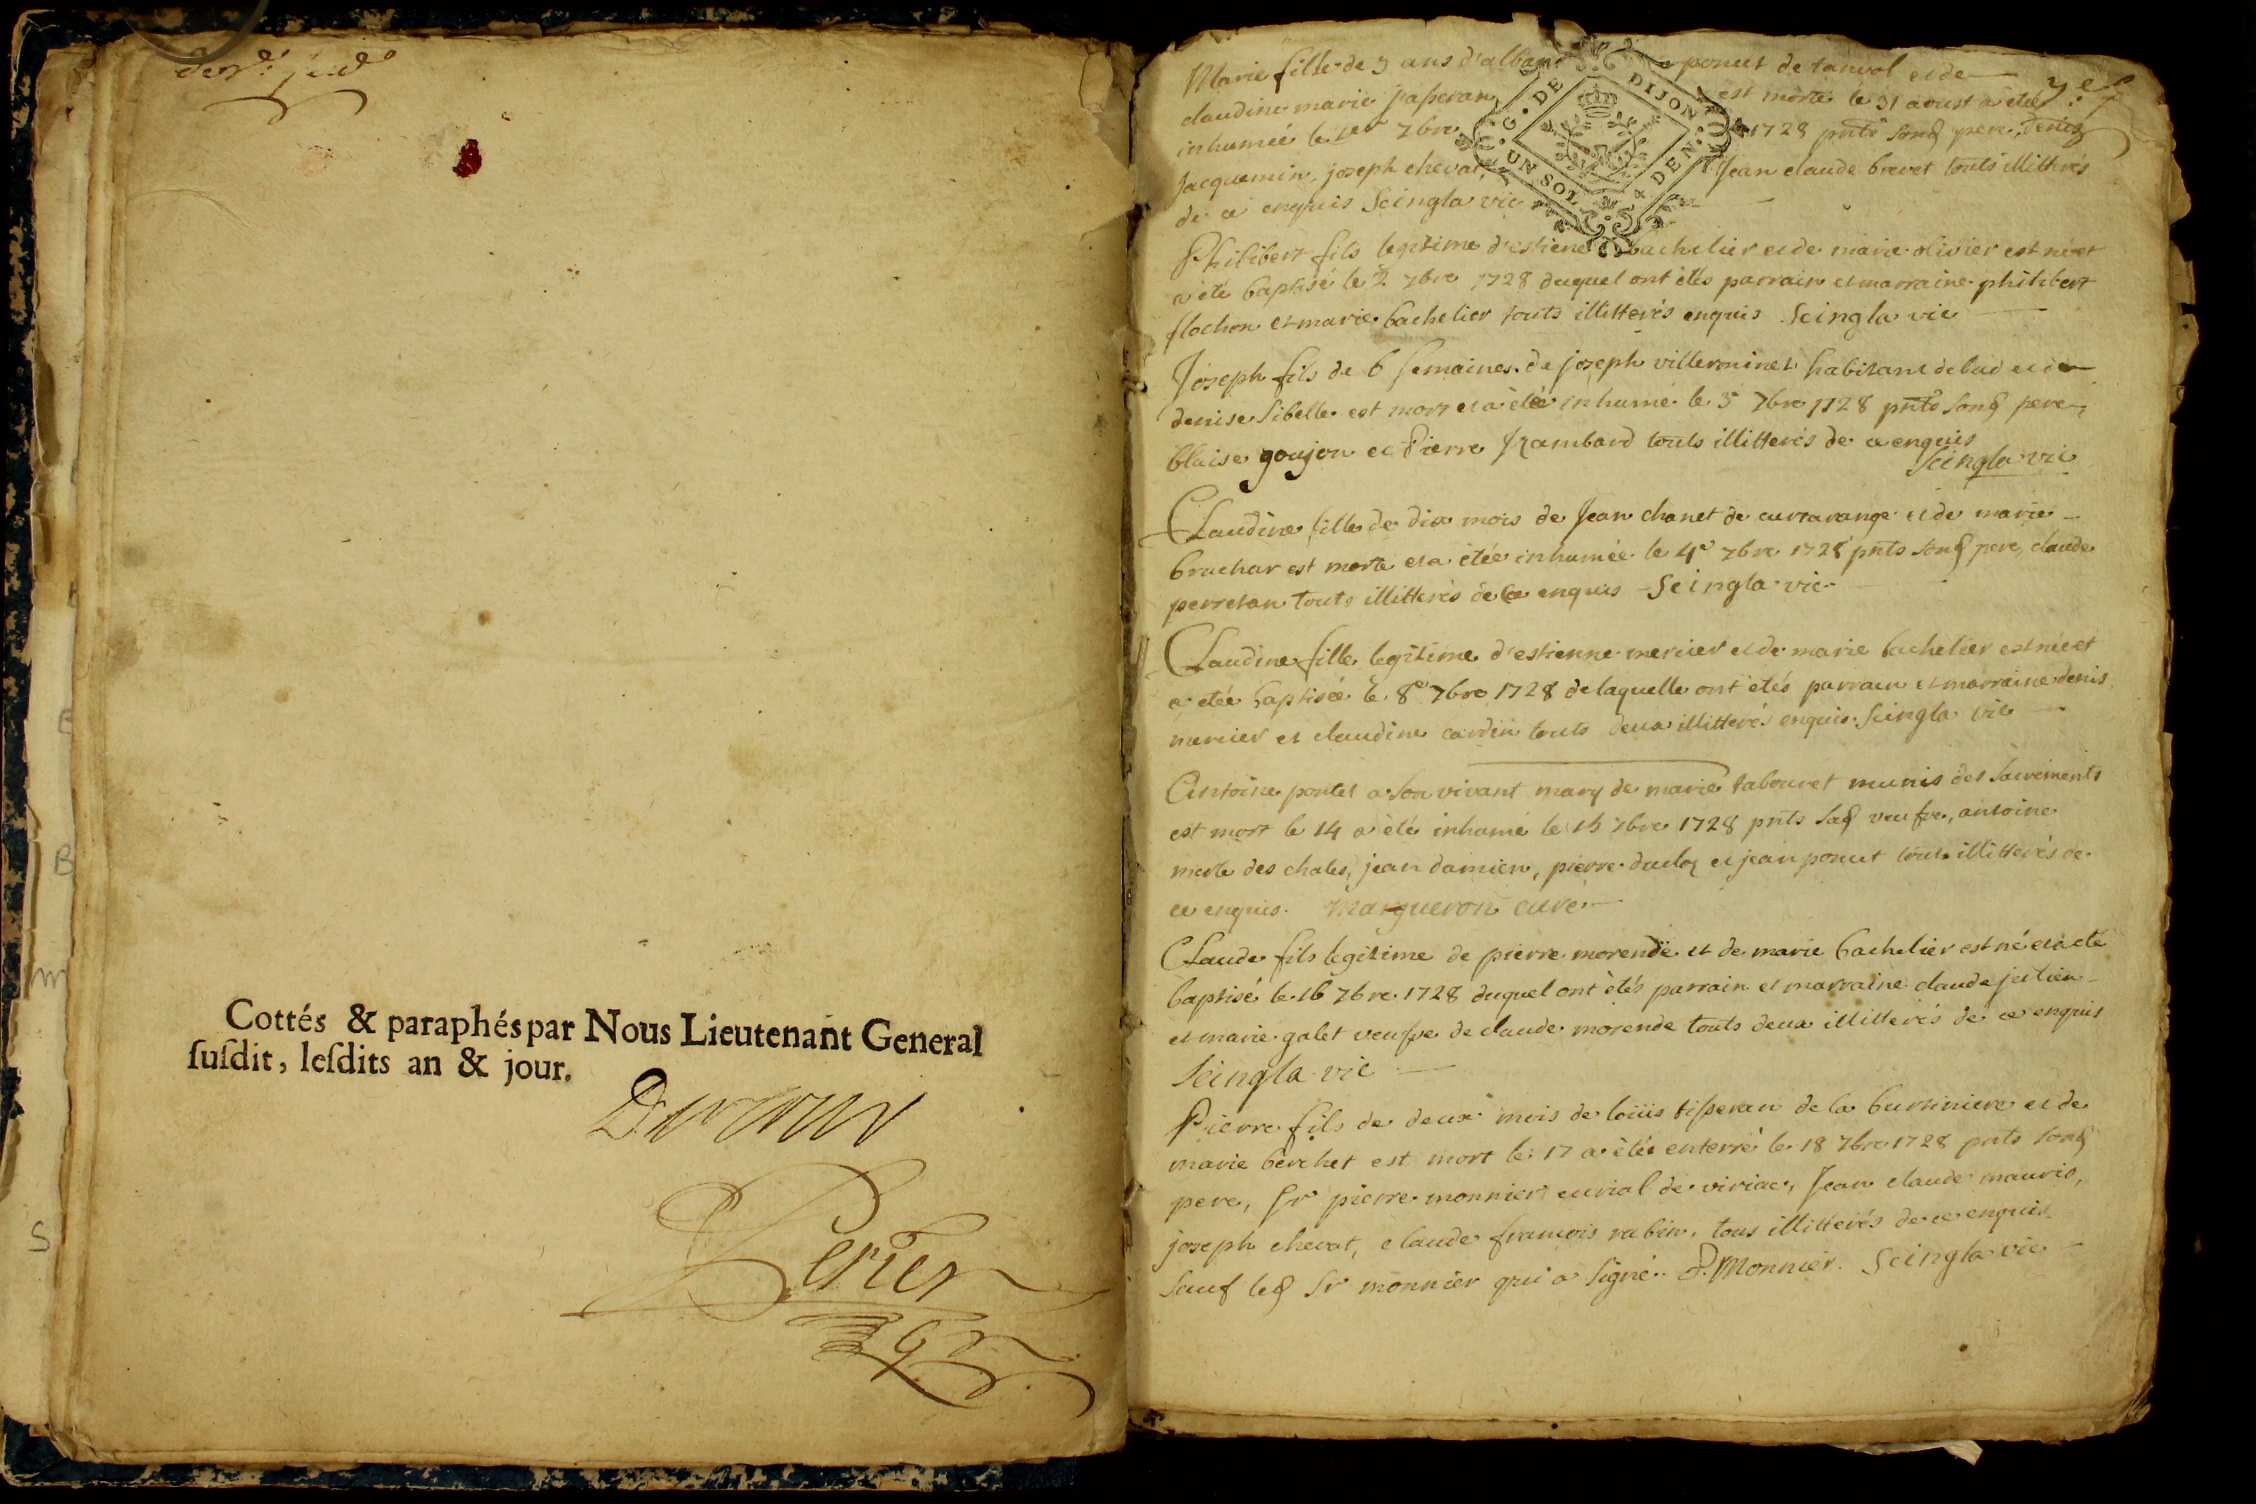 Cottés & paraphés par Nous Lieutenant General
ſuſdit, leſdits an & jour.
Perier
G. DE DIJON
UN SOL 4 DEN.
Marie fille de 3 ans d'alban ponet de tanvol et de
claudine marie passeran est morte le 31 aoust a étée
inhumée le 1er 7bre 1728 pnts sond pere, denis
Jacquemin, joseph chevat, Jean claude brevet touts illitterés
de ce enquis Seingla vic
Philibert fils legitime d'estiene bachelier et de marie olivier est né et
a été baptisé le 2 7bre 1728 duquel ont étés parrain et marraine philibert
flochon et marie bachelier touts illitterés enquis Seingla vic
Joseph fils de 6 semaines de joseph villerminet habitant de lud et de
denise sibelle est mort et a été inhumé le 3 7bre 1728 pnts sond pere,
blaise goujon et Pierre Jzambard touts illitterés de ce enquis
Seingla vic
Claudine fille de dix mois de Jean chanet de curtarange et de marie
brachar est morte et a étée inhumée le 4e 7bre 1728 pnts sond pere, claude
perretan touts illitterés de ce enquis Seingla vic
Claudine fille legitime d'estienne mercier et de marie bachelier est née et
a étée baptisée le 8e 7bre 1728 de laquelle ont étés parrain et marraine denis
mercier et claudine cardin touts deux illitterés enquis Seingla vic
Antoine pontet a son vivant mary de marie tabouret munis des sacrements
est mort le 14 a été inhumé le 15 7bre 1728 pnts sad veufve, antoine
merle des chales, jean damien, pierre duclos et jean ponet touts illitterés de
ce enquis. Margueron curé
Claude fils legitime de pierre morende et de marie bachelier est né et a été
baptisé le 16 7bre 1728 duquel ont étés parrain et marraine claude julien
et marie galet veufve de claude morende touts deux illitterés de ce enquis
Seingla vic
Pierre fils de deux mois de loüis tisseran de la bursiniere et de
marie berchet est mort le 17 a étée enterré le 18 7bre 1728 pnts sond
pere, Sr pierre monnier curial de viriac, Jean claude mauris,
joseph chevat, claude francois rabin, tous illitterés de ce enquis
sauf led Sr monnier qui a signé. P. Monnier. Seingla vic